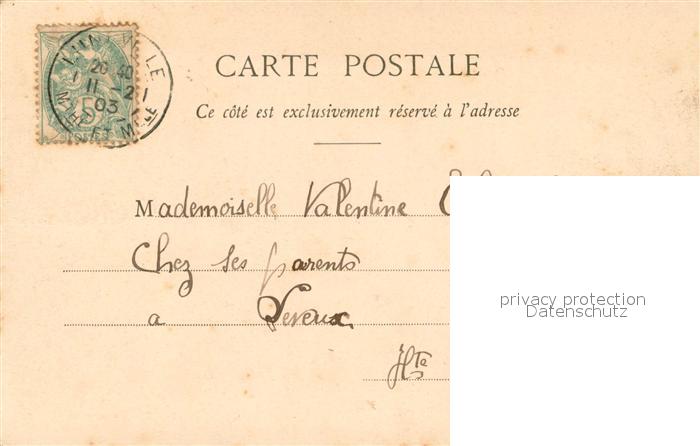 LUNÉVILLE
20 40
11 2
03
MTHE ET MLLE
5
POSTES
CARTE POSTALE
Ce côté est exclusivement réservé à l'adresse
Mademoiselle Valentine
Chez ses parents
a Vereux
Hte
privacy protection
Datenschutz